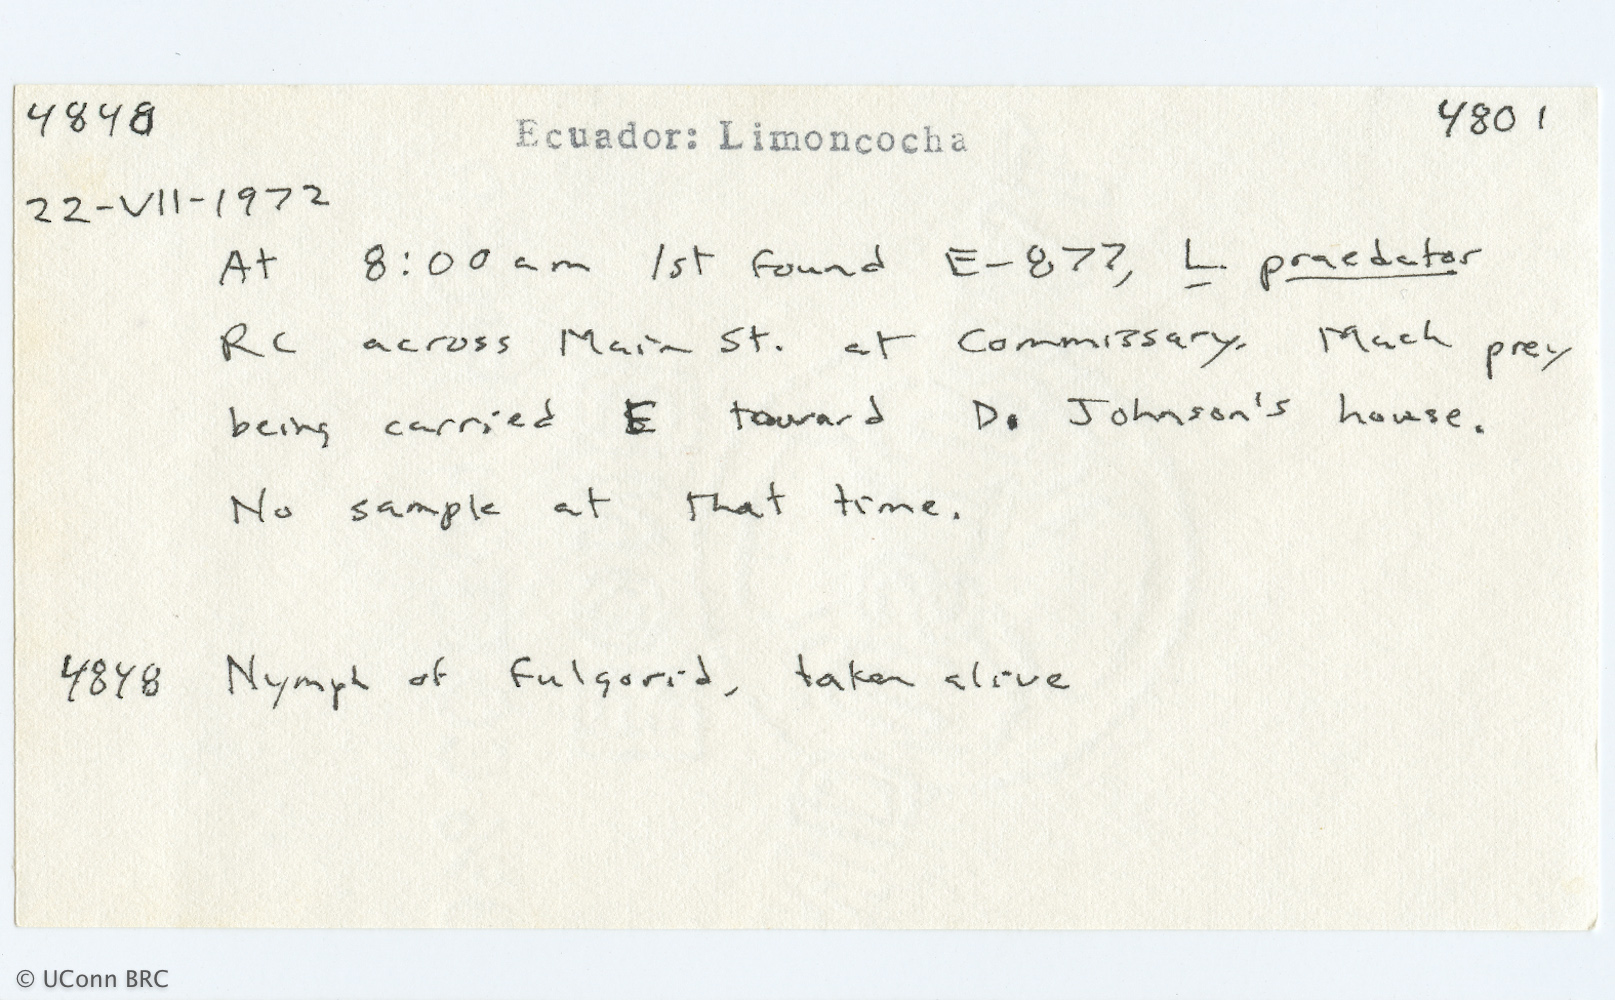 4848
Ecuador: Limoncocha
4801
22-VII-1972
At 8:00 am 1st found E-877, L. praedator
RC across Main St. at Commissary. Mach prey
being carried E toward D. Johnson's house.
No sample at that time.
4848 Nymph of Fulgorid, taken alive
© UConn BRC